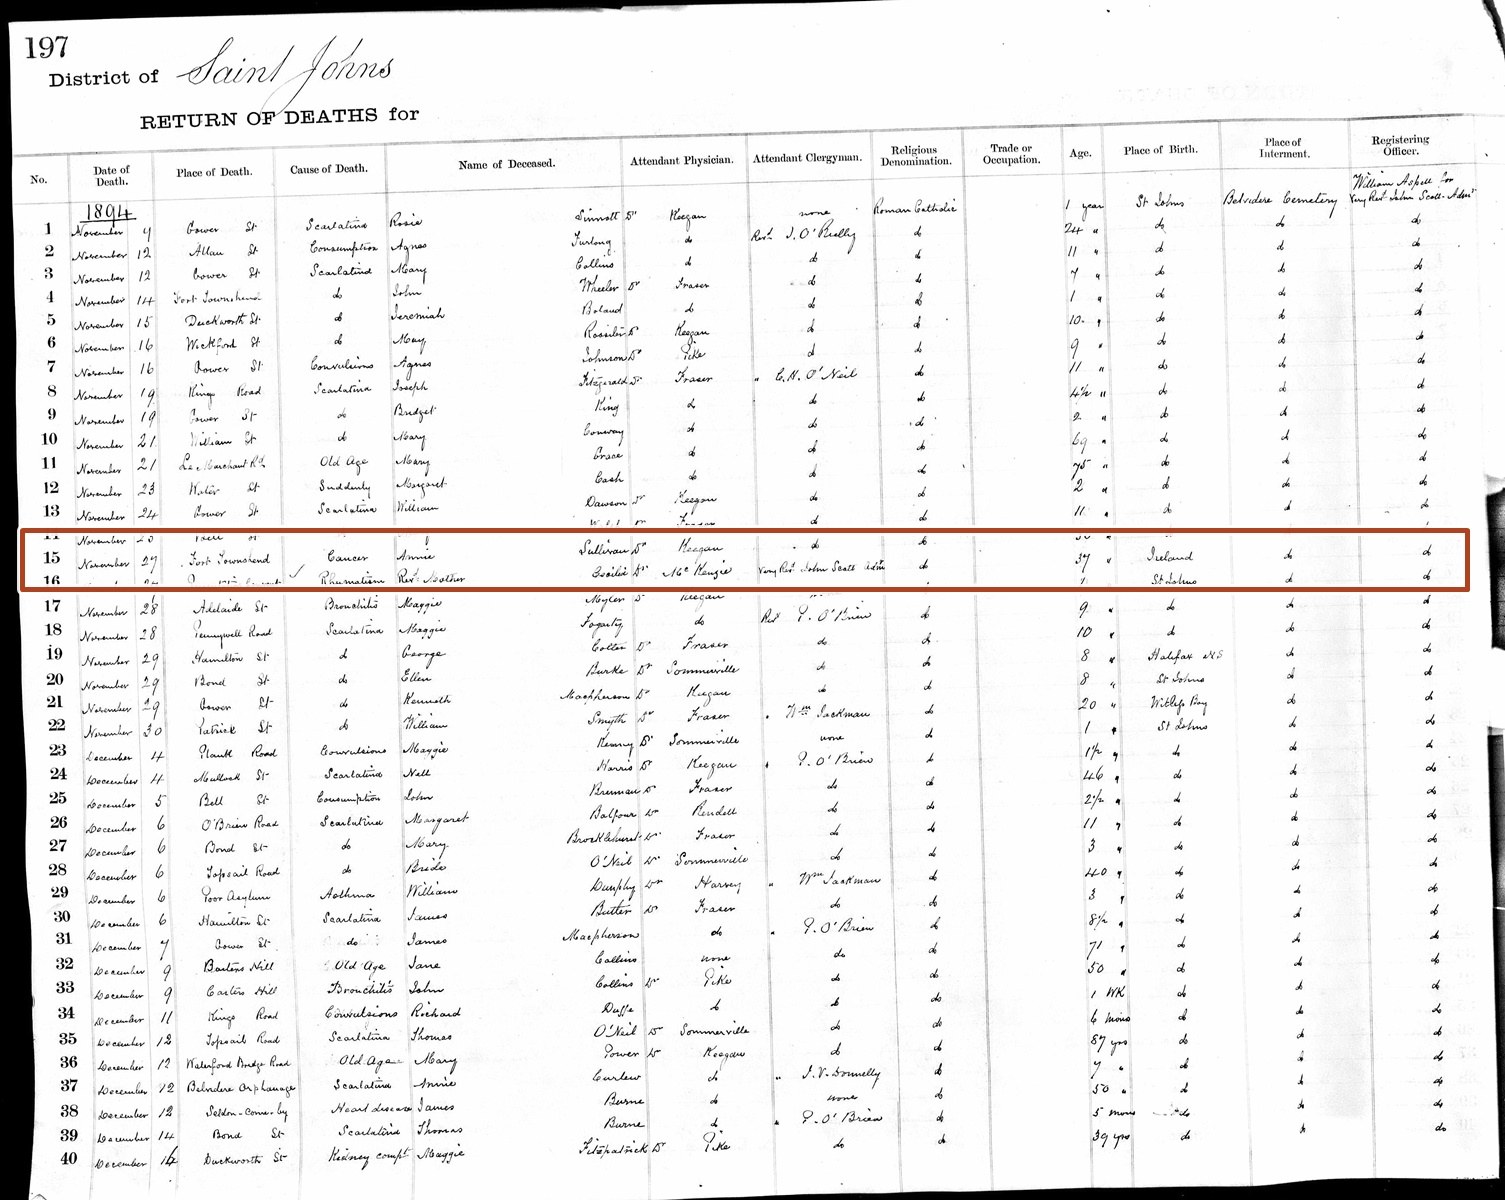 197
District of Saint Johns
RETURN OF DEATHS for
No. Date of Death. Place of Death. Cause of Death. Name of Deceased. Attendant Physician. Attendant Clergyman. Religious Denomination. Trade or Occupation. Age. Place of Birth. Place of Interment. Registering Officer.
1894 William Aspell for Very Revd John Scott Admr
1 November 9 Gower St Scarlatina Rosie Sinnott Dr Keegan none Roman Catholic 1 year St Johns Belvidere Cemetery do
2 November 12 Allan St Consumption Agnes Furlong do Revd J. O'Reilly do 24 " do do do
3 November 12 Gower St Scarlatina Mary Collins do do do 11 " do do do
4 November 14 Fort Townshend do John Wheeler Dr Fraser do do 7 " do do do
5 November 15 Duckworth St do Jeremiah Boland do do do 1 " do do do
6 November 16 Wickford St do May Rossiter Dr Keegan do do 10 " do do do
7 November 16 Gower St Convulsions Agnes Johnson Dr Pike do do 9 " do do do
8 November 19 Kings Road Scarlatina Joseph Fitzgerald Dr Fraser " C. H. O'Neil do 11 " do do do
9 November 19 Gower St do Bridget King do do do 4½ " do do do
10 November 21 William St do Mary Conway do do do 2 " do do do
11 November 21 Le Marchant Rd Old Age Mary Grace do do do 69 " do do do
12 November 23 Water St Suddenly Margaret Cash do do do 75 " do do do
13 November 24 Gower St Scarlatina William Dawson Dr Keegan do do 2 " do do do
Fraser do do 11 " do do do
November St
15 November 27 Fort Townshend Cancer Annie Sullivan Dr Keegan do 37 " Ireland do do
16 Rhumatism Revd Mother Cecilia Dr McKenzie Very Revd John Scott Adm St Johns do do
17 November 28 Adelaide St Bronchitis Maggie Myler Dr Keegan do do do
18 November 28 Pennywell Road Scarlatina Maggie Fogarty do Revd P. O'Brien do 9 " do do do
19 November 29 Hamilton St do George Colter Dr Fraser do do 10 " do do do
20 November 29 Bond St do Ellen Burke Dr Sommerville do do 8 " Halifax N.S do do
21 November 29 Gower St do Kenneth Macpherson Dr Keegan do do 8 " St Johns do do
22 November 30 Patrick St do William Smyth Dr Fraser " Wm Jackman do 20 " Witless Bay do do
23 December 4 Plank Road Convulsions Maggie Kenny Dr Sommerville none do 1 " St Johns do do
24 December 4 Mullock St Scarlatina Nell Harris Dr Keegan " P. O'Brien do 1½ " do do do
25 December 5 Bell St Consumption John Brennan Dr Fraser do do 46 " do do do
26 December 6 O'Brien Road Scarlatina Margaret Balfour Dr Rendell do do 2½ " do do do
27 December 6 Bond St do Mary Brocklehurst Dr Fraser do do 11 " do do do
28 December 6 Topsail Road do Bride O'Neil Dr Sommerville do do 3 " do do do
29 December 6 Poor Asylum Asthma William Dunphy Dr Harvey " Wm Jackman do 40 " do do do
30 December 6 Hamilton St Scarlatina James Butler Dr Fraser do do 3 " do do do
31 December 7 Gower St do James Macpherson do " P. O'Brien do 8½ " do do do
32 December 9 Barters Hill Old Age Jane Collins none do do 71 " do do do
33 December 9 Carters Hill Bronchitis John Collins Dr Pike do do 50 " do do do
34 December 11 Kings Road Convulsions Richard Duffe do do do 1 WK do do do
35 December 12 Topsail Road Scarlatina Thomas O'Neil Dr Sommerville do do 6 mons do do do
36 December 12 Waterford Bridge Road Old Age Mary Power Dr Keegan do do 87 yrs do do do
37 December 12 Belvidere Orphanage Scarlatina Annie Curlew do " J. V. Donnelly do 7 " do do do
38 December 12 Seldon-come-by Heart disease James Burne do none do 50 " do do do
39 December 14 Bond St Scarlatina Thomas Burne do " P. O'Brien do 5 mons do do do
40 December 14 Duckworth St Kidney compt Maggie Fitzpatrick Dr Pike do do 39 yrs do do do